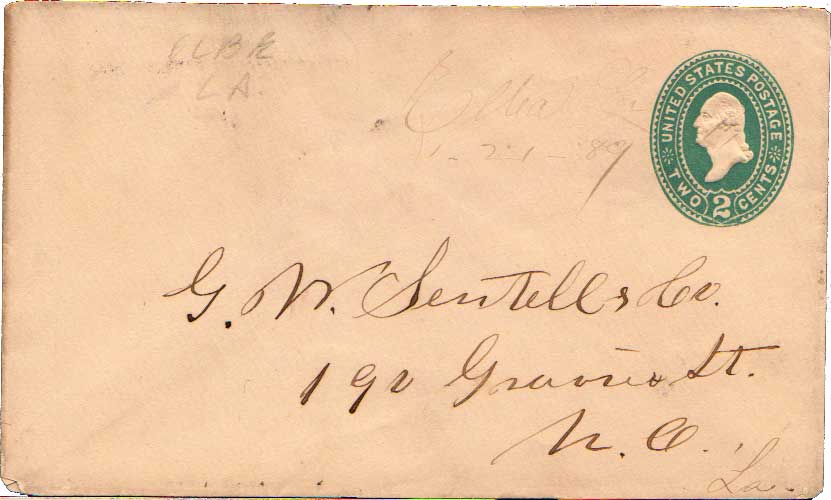 ELBA
LA.
Elba La
1-21-89
UNITED STATES POSTAGE
TWO 2 CENTS
G. W. Sentell & Co.
192 Gravier St.
N. O.
La.